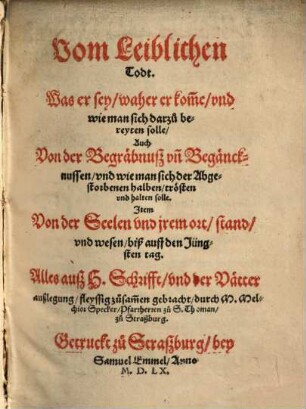 Vom Leiblichen
Todt.
Was er sey/ waher er kom̃e/ vnd
wie man sich darzů be-
reyten solle/
Auch
Von der Begräbnuß vñ Begänck-
nussen/ vnd wie man sich der Abge-
storbenen halben/ trösten
vnd halten solle.
Item
Von der Seelen vnd jrem ort/ stand/
vnd wesen/ biß auff den Jüng-
sten tag.
Alles auß H. Schrifft/ vnd der Vätter
außlegung/ fleyssig zůsam̃en gebracht/ durch M. Mel-
chior Specker/ Pfarrherren zů S. Thoman/
zů Straßburg.
Getruckt zů Straßburg/ bey
Samuel Emmel/ Anno
M. D. LX.